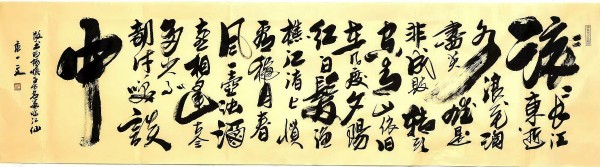 滚滚长江东逝
水浪花淘
尽英雄是
非成败转头
空青山依旧
在几度夕阳
红白发渔
樵江渚上惯
看秋月春
风一壶浊酒
喜相逢古今
多少事
都付笑谈
中
临江仙